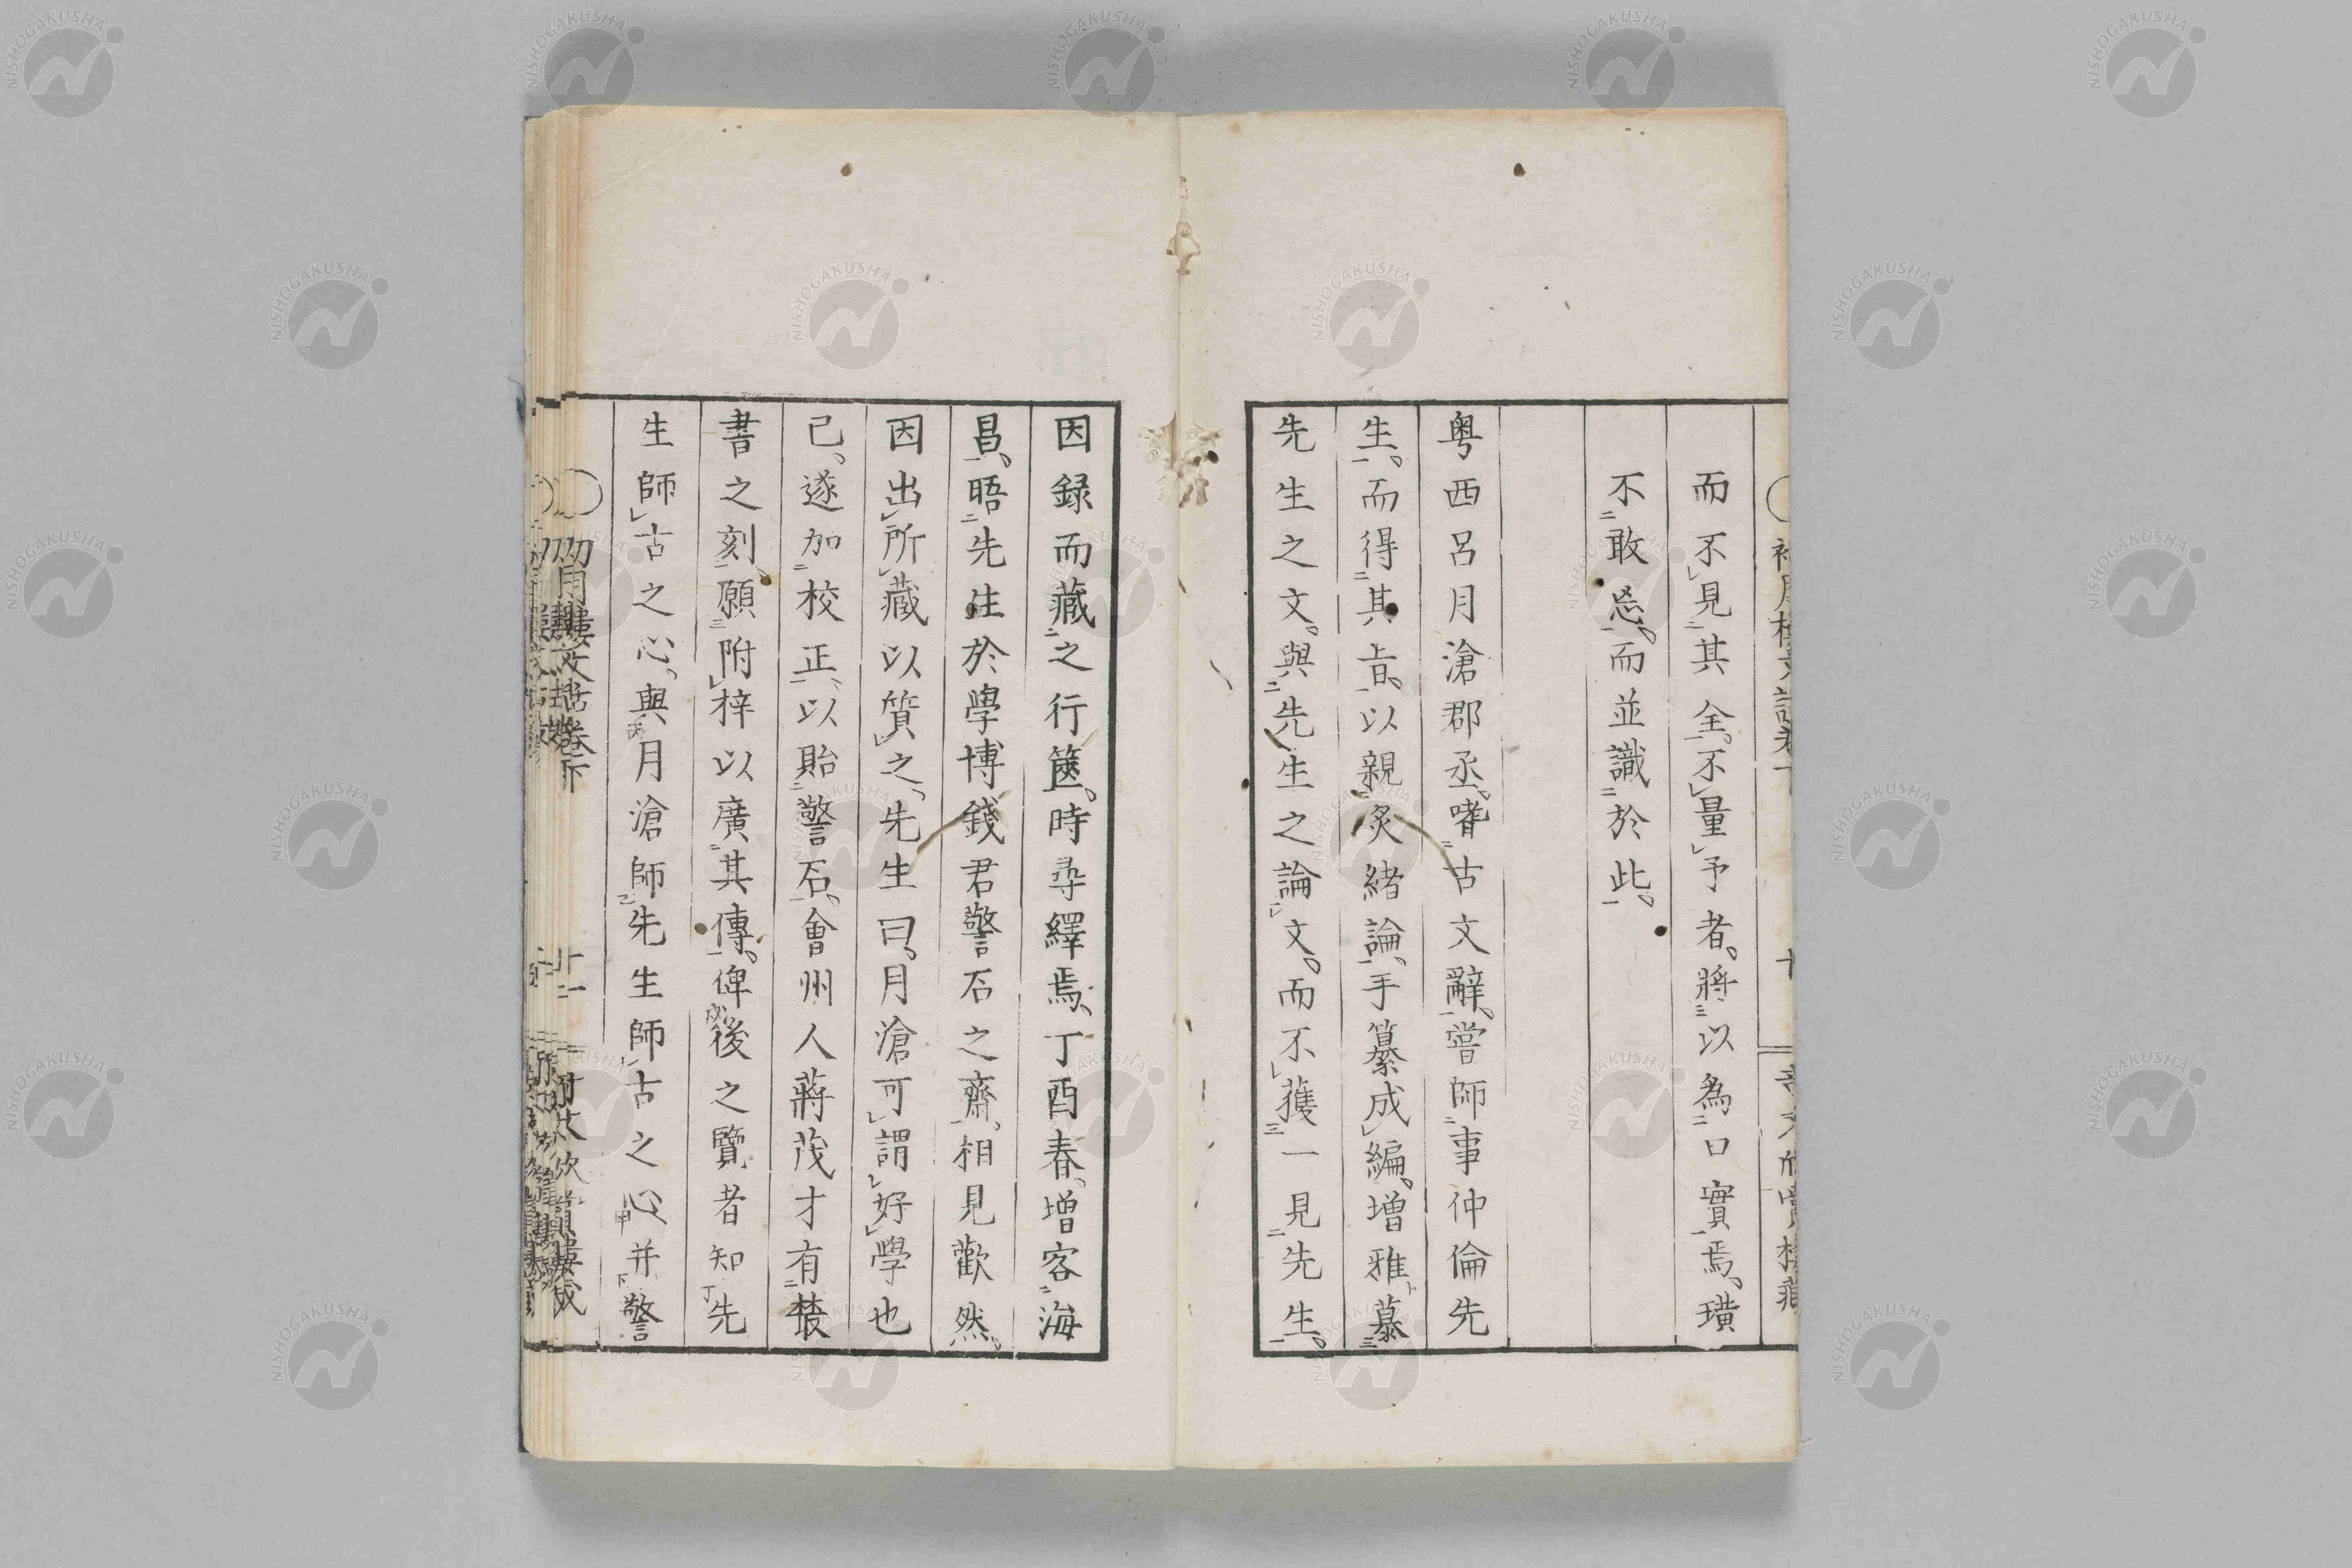 而不見其全不量予者將以為口實焉璜
不敢忌而並識於此
粤西呂月滄郡丞嗜古文辭嘗師事仲倫先
生而得其旨以親炙緒論手纂成編增雅慕
先生之文與先生之論文而不獲一見先生
因録而藏之行篋時尋繹焉丁酉春增客海
昌晤先生於學博錢君警石之齋相見歡然
因出所藏以質之先生曰月滄可謂好學也
已遂加校正以貽警石會州人蔣茂才有叢
書之刻願附梓以廣其傳俾後之覽者知先
生師古之心與月滄師先生師古之心并警
NISHOGAKUSHA